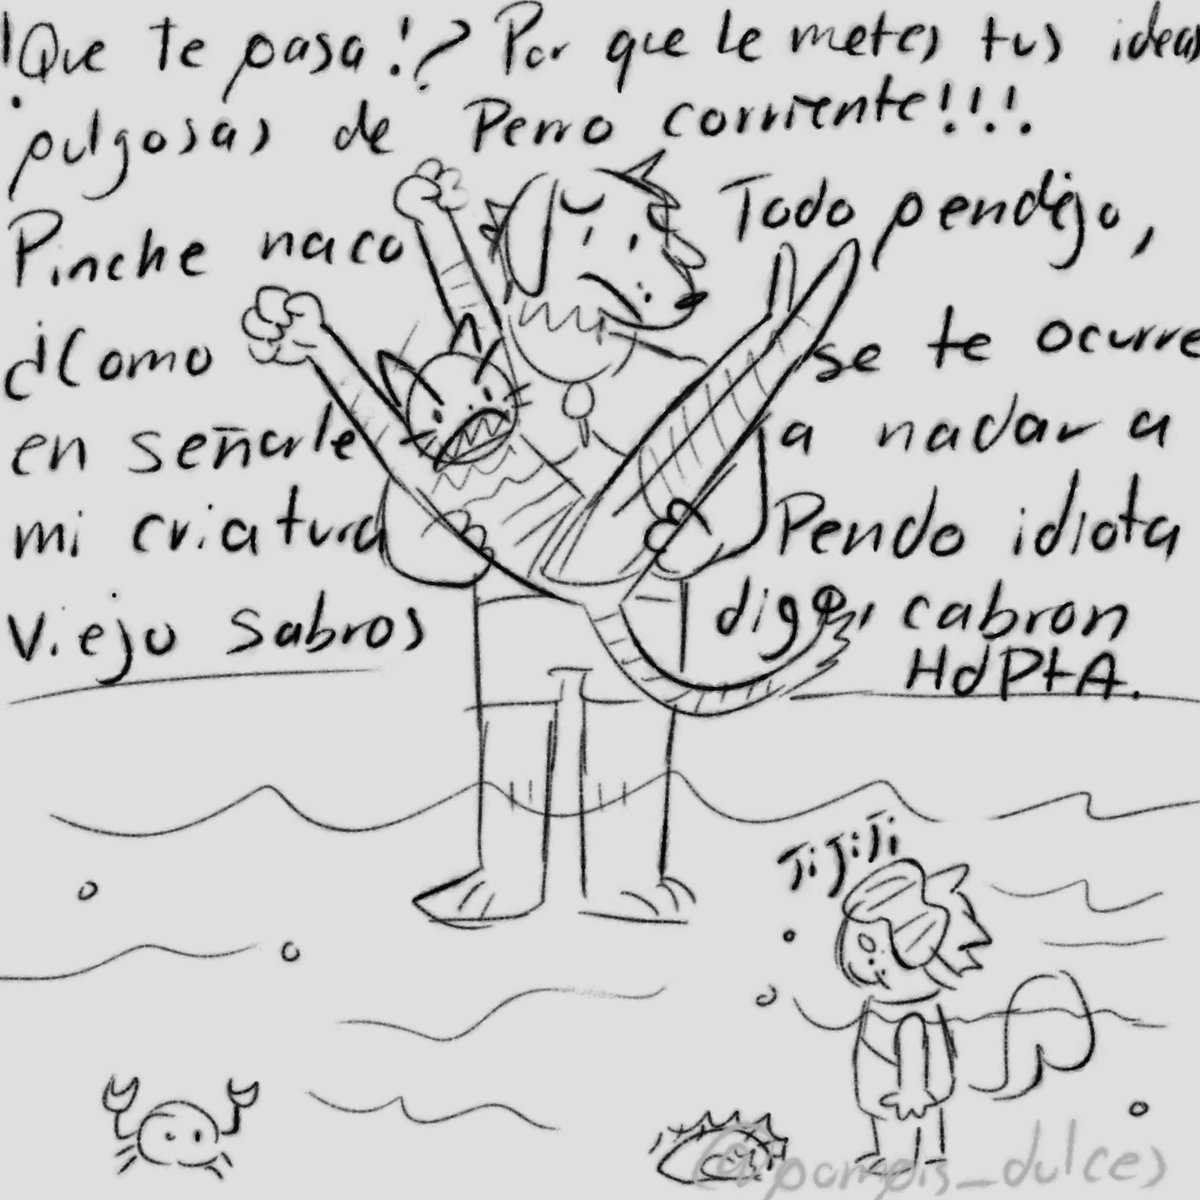 ¡Que te pasa!? Por que le metes tus ideas
pulgosas de Perro corriente!!!
Pinche naco Todo pendejo,
¿Como se te ocurre
en señarle a nadar a
mi criatura Pendo idiota
Viejo Sabros digo, cabron
HdPtA.
Ji Ji Ji
@pompis_dulces